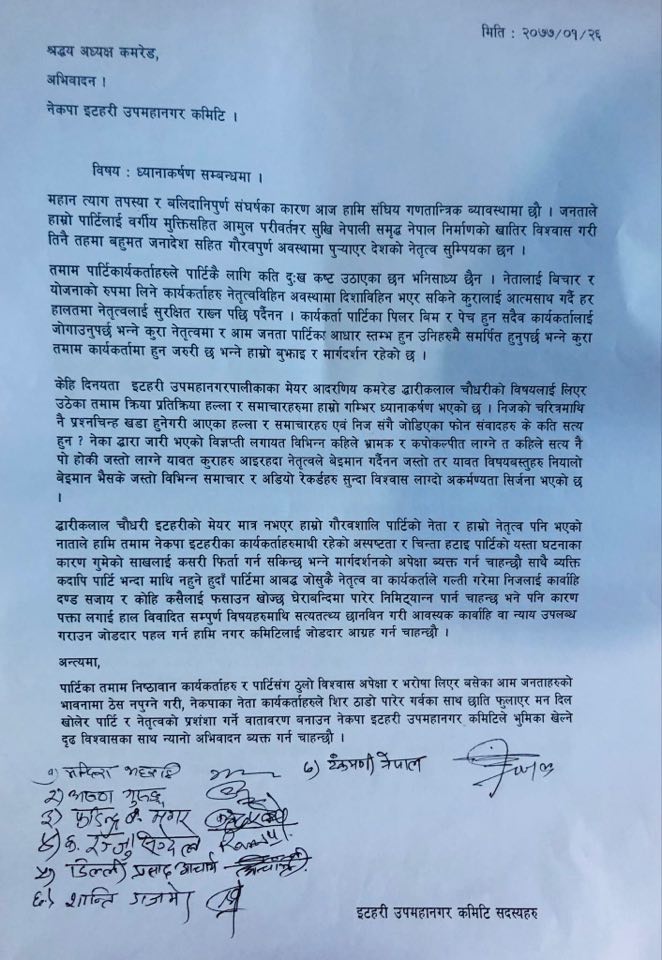 मिति : २०७७/०१/२६
श्रद्धय अध्यक्ष कमरेड,
अभिवादन ।
नेकपा इटहरी उपमहानगर कमिटि ।
विषय : ध्यानाकर्षण सम्बन्धमा ।
महान त्याग तपस्या र बलिदानिपुर्ण संघर्षका कारण आज हामि संघिय गणतान्त्रिक ब्यावस्थामा छौ । जनताले
हाम्रो पार्टिलाई वर्गीय मुक्तिसहित आमुल परीवर्तनर सुखि नेपाली समृद्ध नेपाल निर्माणको खातिर विश्वास गरी
तिनै तहमा बहुमत जनादेश सहित गौरवपुर्ण अवस्थामा पुर्‍याएर देशको नेतृत्व सुम्पियका छन ।
तमाम पार्टिकार्यकर्ताहरुले पार्टिकै लागि कति दु:ख कष्ट उठाएका छन भनिसाध्य छैन । नेतालाई विचार र
योजनाको रुपमा लिने कार्यकर्ताहरु नेतृत्वविहिन अवस्थामा दिशाविहिन भएर सकिने कुरालाई आत्मसाथ गर्दै हर
हालतमा नेतृत्वलाई सुरक्षित राख्न पछि पर्दैनन । कार्यकर्ता पार्टिका पिलर बिम र पेच हुन सदैव कार्यकर्तालाई
जोगाउनुपर्छ भन्ने कुरा नेतृत्वमा र आम जनता पार्टिका आधार स्तम्भ हुन उनिहरुमै समर्पित हुनुपर्छ भन्ने कुरा
तमाम कार्यकर्तामा हुन जरुरी छ भन्ने हाम्रो बुझाइ र मार्गदर्शन रहेको छ ।
केहि दिनयता इटहरी उपमहानगरपालीकाका मेयर आदरणिय कमरेड द्धारीकलाल चौधरीको विषयलाई लिएर
उठेका तमाम क्रिया प्रतिक्रिया हल्ला र समाचारहरुमा हाम्रो गम्भिर ध्यानाकर्षण भएको छ । निजको चरित्रमाथि
नै प्रश्नचिन्ह खडा हुनेगरी आएका हल्ला र समाचारहरु एवं निज संगै जोडिएका फोन संवादहरु के कति सत्य
हुन ? नेका द्वारा जारी भएको विज्ञप्ती लगायत विभिन्न कहिले भ्रामक र कपोकल्पीत लाग्ने त कहिले सत्य नै
पो होकी जस्तो लाग्ने यावत कुराहरु आइरहदा नेतृत्वले बेइमान गर्दैनन जस्तो तर यावत विषयबस्तुहरु नियालो
बेइमान भैसके जस्तो विभिन्न समाचार र अडियो रेकर्डहरु सुन्दा विश्वास लाग्दो अकर्मण्यता सिर्जना भएको छ
।
द्धारीकलाल चौधरी इटहरीको मेयर मात्र नभएर हाम्रो गौरवशालि पार्टिको नेता र हाम्रो नेतृत्व पनि भएको
नाताले हामि तमाम नेकपा इटहरीका कार्यकर्ताहरुमाथी रहेको अस्पष्टता र चिन्ता हटाइ पार्टिको यस्ता घटनाका
कारण गुमेको साखलाई कसरी फिर्ता गर्न सकिन्छ भन्ने मार्गदर्शनको अपेक्षा ब्यक्त गर्न चाहन्छौ साथै ब्यक्ति
कदापि पार्टि भन्दा माथि नहुने हुदाँ पार्टिमा आबद्ध जोसुकै नेतृत्व वा कार्यकर्ताले गल्ती गरेमा निजलाई कार्वाहि
दण्ड सजाय र कोहि कसैलाई फसाउन खोज्छ घेराबन्दिमा पारेर निमिट्यान्न पार्न चाहन्छ भने पनि कारण
पक्ता लगाई हाल विवादित सम्पुर्ण विषयहरुमाथि सत्यतत्थ्य छानविन गरी आवस्यक कार्वाहि वा न्याय उपलब्ध
गराउन जोडदार पहल गर्न हामि नगर कमिटिलाई जोडदार आग्रह गर्न चाहन्छौ ।
अन्त्यमा,
पार्टिका तमाम निष्ठावान कार्यकर्ताहरु र पार्टिसंग ठुलो विश्वास अपेक्षा र भरोषा लिएर बसेका आम जनताहरुको
भावनामा ठेस नपुग्ने गरी, नेकपाका नेता कार्यकर्ताहरुले शिर ठाडो पारेर गर्वका साथ छाति फुलाएर मन दिल
खोलेर पार्टि र नेतृत्वको प्रशंशा गर्ने वातावरण बनाउन नेकपा इटहरी उपमहानगर कमिटिले भुमिका खेल्ने
दृढ विश्वासका साथ न्यानो अभिवादन ब्यक्त गर्न चाहन्छौ ।
१)
७) टंकमणी नेपाल
२)
३) मगर
४) क. रन्जु
५) डिल्ली प्रसाद आचार्य
६) शान्ति
इटहरी उपमहानगर कमिटि सदस्यहरु